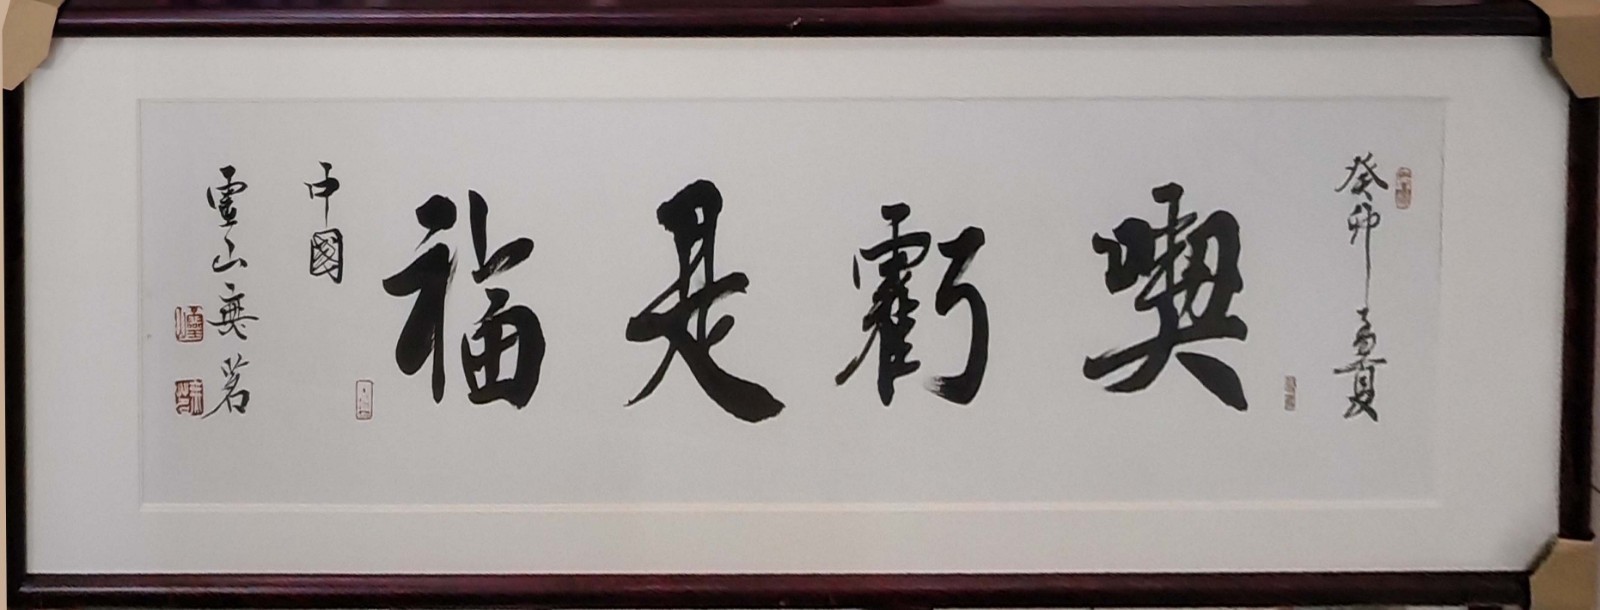 癸卯孟夏
喫虧是福
中國
靈山無茗